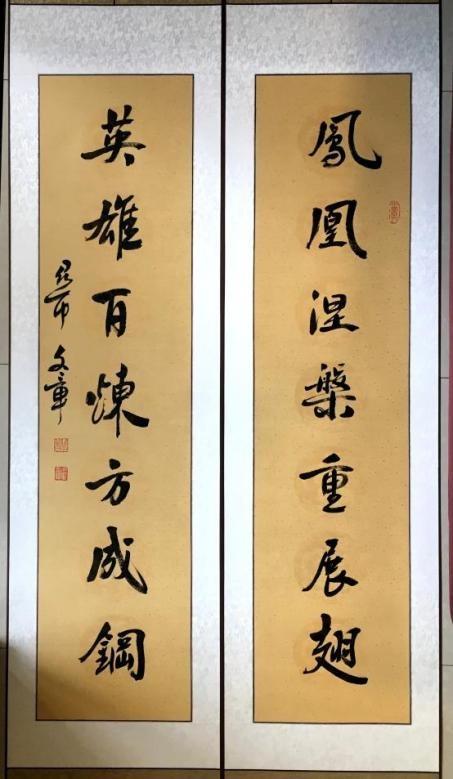 鳳凰涅槃重展翅
英雄百煉方成鋼
文章